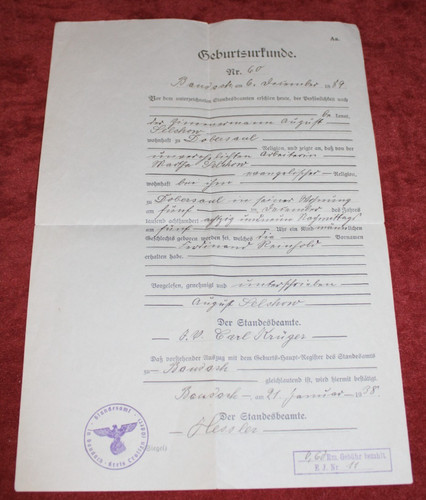 Aa.
Geburtsurkunde.
Nr. 60
am 6. Dezember 1889.
Vor dem unterzeichneten Standesbeamten erschien heute, der Persönlichkeit nach
be kannt,
der Zimmermann August
Selchow
wohnhaft zu Dobersaul
Religion, und zeigte an, daß von der
unverehelichten Arbeiterin
Martha Selchow
evangelischer Religion,
wohnhaft bei ihm
zu Dobersaul in seiner Wohnung
am fünf ten Dezember des Jahres
tausend achthundert achtzig und neun Nachmittags
um fünf Uhr ein Kind männlichen
Geschlechts geboren worden sei, welches die Vornamen
Ferdinand Reinhold
erhalten habe.
Vorgelesen, genehmigt und unterschrieben
August Selchow
Der Standesbeamte.
I. V. Carl Krüger
Daß vorstehender Auszug mit dem Geburts-Haupt-Register des Standesamts
zu
gleichlautend ist, wird hiermit bestätigt.
am 21. Januar 1938.
Der Standesbeamte.
(Siegel)
Standesamt
Gebühr bezahlt
K. J. Nr. 11